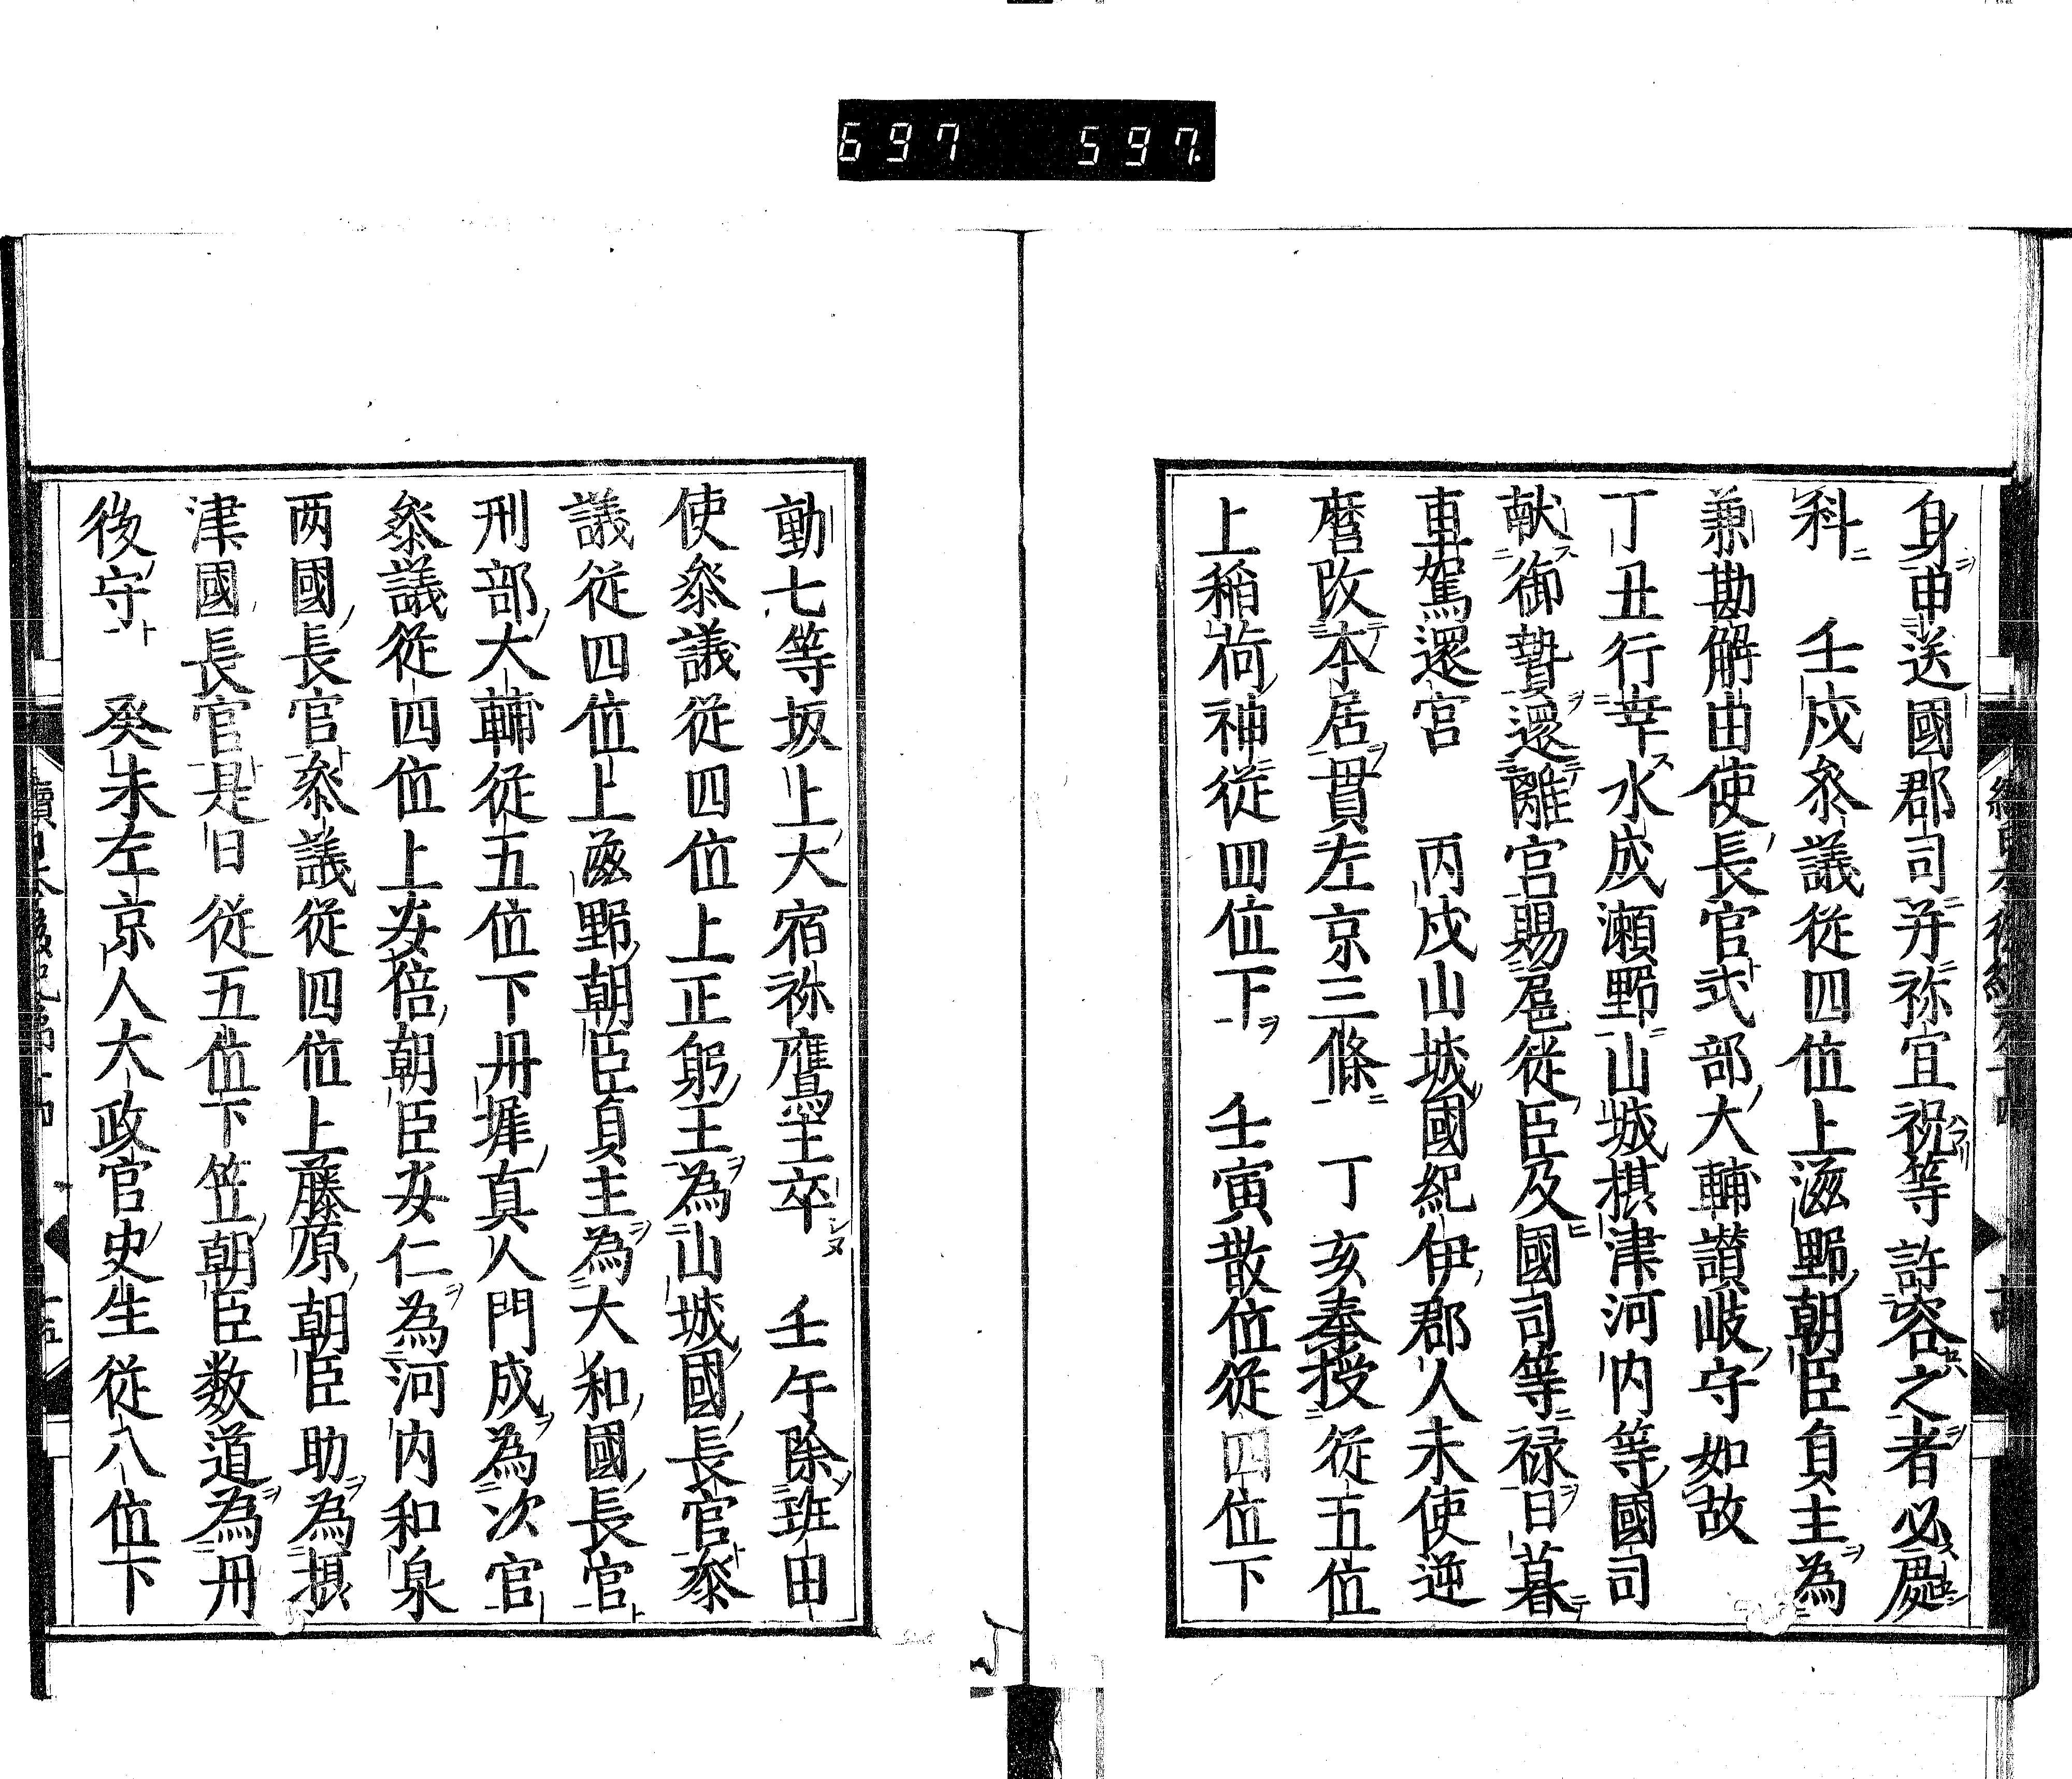 697 597.
身申送國郡司并祢宜祝等許容之者必處
科 壬戌叅議從四位上滋野朝臣貞主為
兼勘解由使長官式部大輔讃岐守如故
丁丑行幸水成瀬野山城摂津河内等國司
献御贄還離宮賜扈從臣及國司等禄日暮
車駕還宮 丙戌山城國紀伊郡人末使逆
麿改本居貫左京三條 丁亥奉授從五位
上稲荷神從四位下 壬寅散位從四位下
勳七等坂上大宿祢鷹主卒 壬午除班田
使叅議從四位上正躬王為山城國長官叅
議從四位上滋野朝臣貞主為大和國長官
刑部大輔從五位下丹墀真人門成為次官
叅議從四位上安倍朝臣安仁為河内和泉
两國長官叅議從四位上藤原朝臣助為摂
津國長官是日從五位下笠朝臣数道為丹
後守 癸未左京人大政官史生從八位下